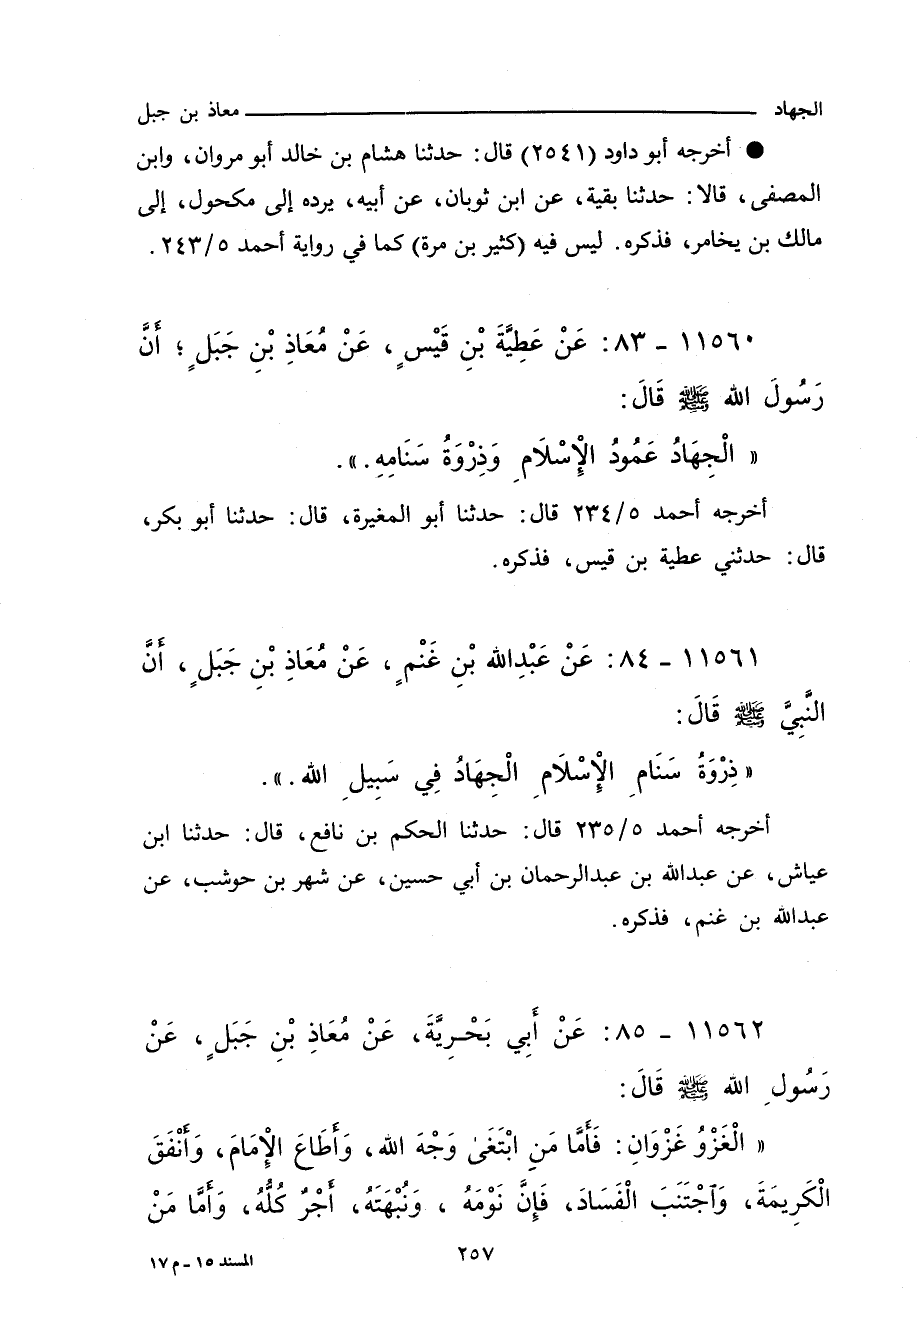 الجهاد ــــــــــــــــــــ معاذ بن جبل
● أخرجه أبو داود (٢٥٤١) قال: حدثنا هشام بن خالد أبو مروان، وابن
المصفى، قالا: حدثنا بقية، عن ابن ثوبان، عن أبيه، يرده إلى مكحول، إلى
مالك بن يخامر، فذكره. ليس فيه (كثير بن مرة) كما في رواية أحمد ٢٤٣/٥.
١١٥٦٠ - ٨٣: عَنْ عَطِيَّةَ بْنِ قَيْسٍ، عَنْ مُعَاذِ بْنِ جَبَلٍ؛ أَنَّ
رَسُولَ الله ﷺ قَالَ:
« الْجِهَادُ عَمُودُ الإِسْلَامِ وَذِرْوَةُ سَنَامِهِ.».
أخرجه أحمد ٢٣٤/٥ قال: حدثنا أبو المغيرة، قال: حدثنا أبو بكر،
قال: حدثني عطية بن قيس، فذكره.
١١٥٦١ - ٨٤: عَنْ عَبْدِالله بْنِ غَنْمٍ، عَنْ مُعَاذِ بْنِ جَبَلٍ، أَنَّ
النَّبِيَّ ﷺ قَالَ:
« ذِرْوَةُ سَنَامِ الإِسْلَامِ الْجِهَادُ فِي سَبِيلِ الله.».
أخرجه أحمد ٢٣٥/٥ قال: حدثنا الحكم بن نافع، قال: حدثنا ابن
عياش، عن عبدالله بن عبدالرحمان بن أبي حسين، عن شهر بن حوشب، عن
عبدالله بن غنم، فذكره.
١١٥٦٢ - ٨٥: عَنْ أَبِي بَحْرِيَّةَ، عَنْ مُعَاذِ بْنِ جَبَلٍ، عَنْ
رَسُولِ الله ﷺ قَالَ:
« الْغَزْوُ غَزْوَانِ: فَأَمَّا مَنِ ابْتَغَىٰ وَجْهَ الله، وَأَطَاعَ الإِمَامَ، وَأَنْفَقَ
الْكَرِيمَةَ، وَاجْتَنَبَ الْفَسَادَ، فَإِنَّ نَوْمَهُ، وَنُبْهَتَهُ، أَجْرٌ كُلُّهُ، وَأَمَّا مَنْ
٢٥٧
المسند ١٥ - م ١٧